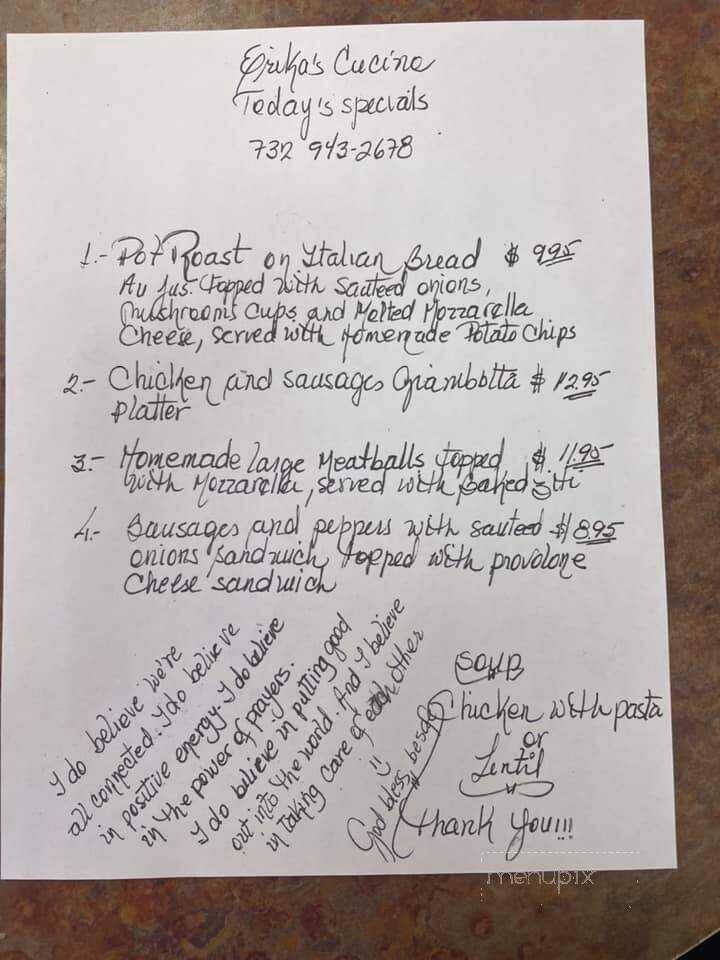 Erika's Cucina
Today's specials
732 943-2678
1.- Pot Roast on Italian Bread $ 9.95
Au Jus. topped with Sauteed onions,
mushrooms Cups and Melted Mozzarella
Cheese, served with Homemade Potato Chips
2.- Chicken and sausages Giambotta $ 12.95
Platter
3.- Homemade large Meatballs topped $ 11.95
with Mozzarella, served with Baked ziti
4.- Sausages and peppers with sauteed $ 8.95
onions sandwich, topped with provolone
Cheese sandwich
I do believe we're
all connected. I do believe
in positive energy. I do believe
in the power of prayers.
I do believe in putting good
out into the world. And I believe
in taking care of each other
God bless
SOUP
Chicken with pasta
or
Lentil
Thank You!!!
menupix